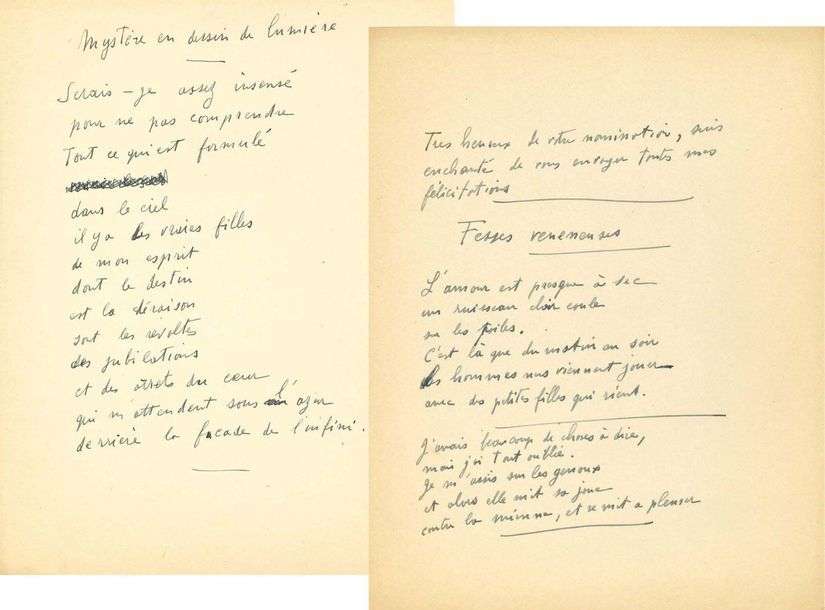 Mystère en dessin de lumière
Serais-je assez insensé
pour ne pas comprendre
Tout ce qui est formulé
dans le ciel
il y a les vraies filles
de mon esprit
dont le destin
est la déraison
sont les révoltes
des jubilations
et des arrêts du cœur
qui m'attendent sous l'azur
derrière la façade de l'infini.
Tres heureux de votre nomination, suis
enchanté de vous envoyer toutes mes
félicitations
Fesses veneneuses
L'amour est presque à sec
un ruisseau clair coule
sur les
C'est là que du matin au soir
les hommes nus viennent jouer
avec des petites filles qui rient.
J'avais beaucoup de choses à dire,
mais j'ai tout oublié.
Je m'assis sur les genoux
et alors elle mit sa joue
contre la mienne, et se mit a pleurer